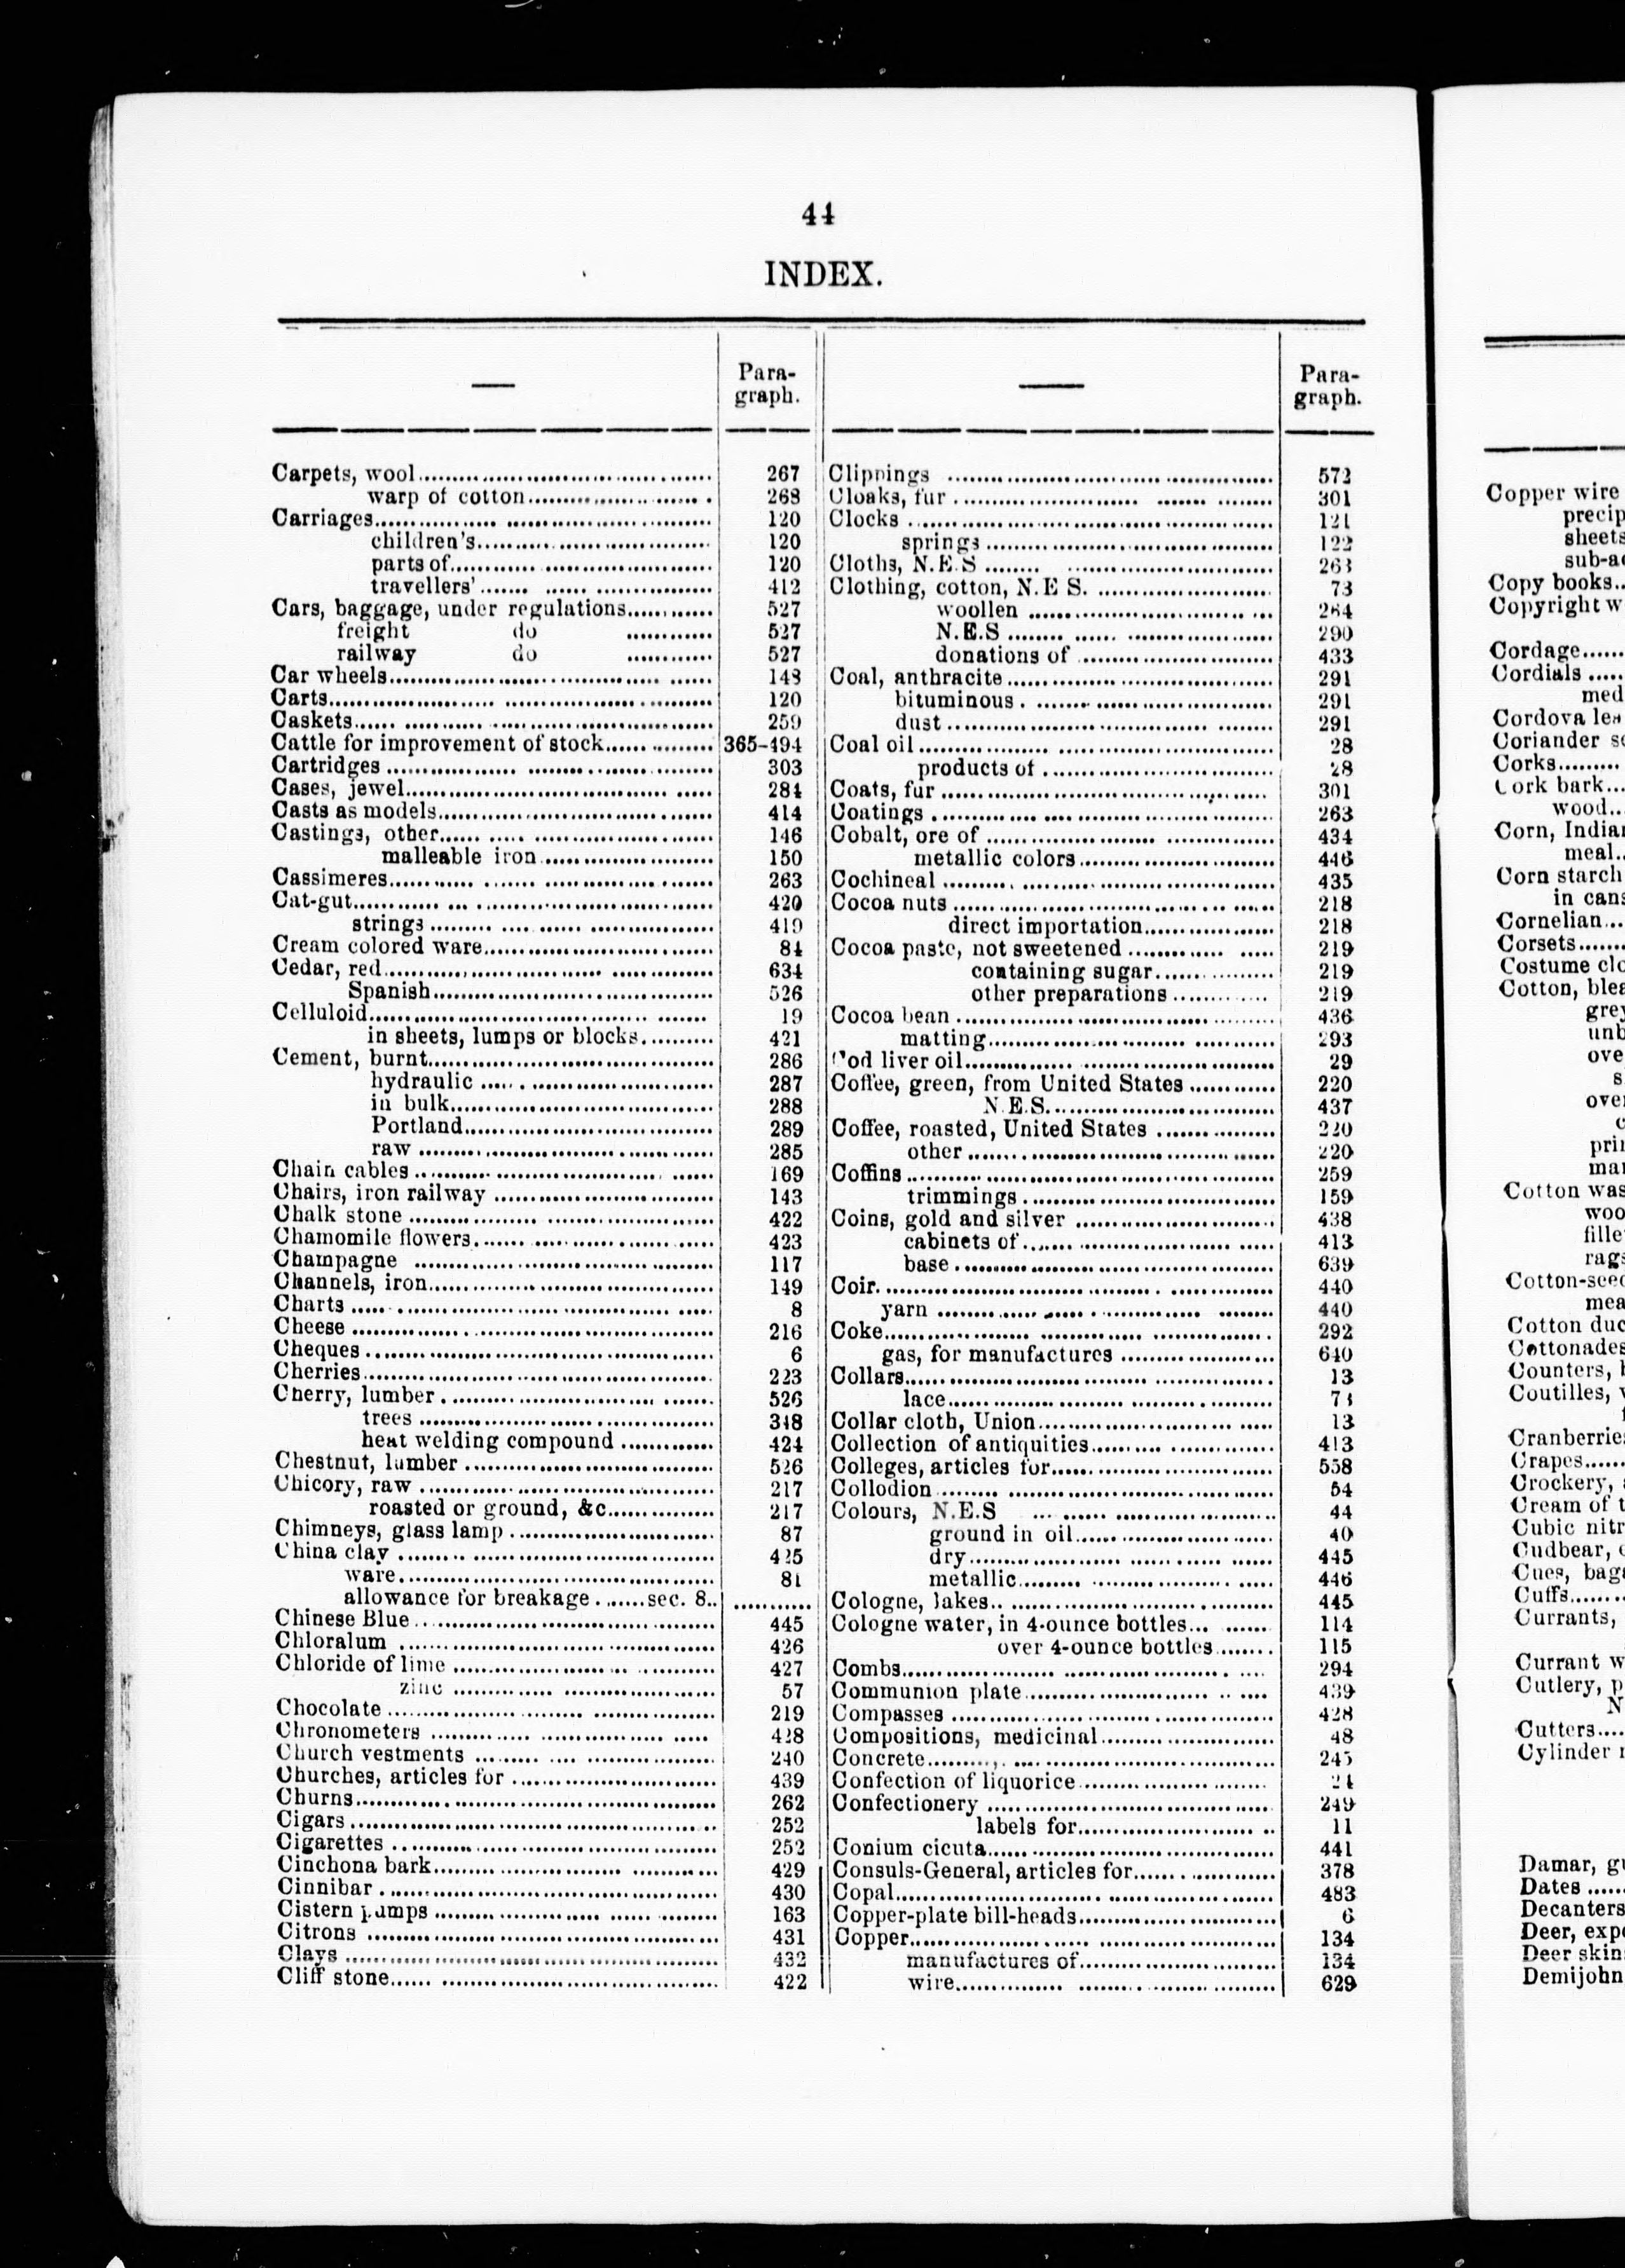 44
INDEX.
Para-
graph.
Carpets, wool 267
warp of cotton 268
Carriages 120
children's 120
parts of 120
travellers' 412
Cars, baggage, under regulations 527
freight do 527
railway do 527
Car wheels 143
Carts 120
Caskets 259
Cattle for improvement of stock 365-494
Cartridges 303
Cases, jewel 284
Casts as models 414
Castings, other 146
malleable iron 150
Cassimeres 263
Cat-gut 420
strings 419
Cream colored ware 84
Cedar, red 634
Spanish 526
Celluloid 19
in sheets, lumps or blocks 421
Cement, burnt 286
hydraulic 287
in bulk 288
Portland 289
raw 285
Chain cables 169
Chairs, iron railway 143
Chalk stone 422
Chamomile flowers 423
Champagne 117
Channels, iron 149
Charts 8
Cheese 216
Cheques 6
Cherries 223
Cherry, lumber 526
trees 348
heat welding compound 424
Chestnut, lumber 526
Chicory, raw 217
roasted or ground, &c. 217
Chimneys, glass lamp 87
China clay 425
ware 81
allowance for breakage sec. 8
Chinese Blue 445
Chloralum 426
Chloride of lime 427
zinc 57
Chocolate 219
Chronometers 428
Church vestments 240
Churches, articles for 439
Churns 262
Cigars 252
Cigarettes 252
Cinchona bark 429
Cinnibar 430
Cistern pumps 163
Citrons 431
Clays 432
Cliff stone 422
Para-
graph.
Clippings 572
Cloaks, fur 301
Clocks 121
springs 122
Cloths, N.E.S 263
Clothing, cotton, N.E S. 73
woollen 264
N.E.S 290
donations of 433
Coal, anthracite 291
bituminous 291
dust 291
Coal oil 28
products of 28
Coats, fur 301
Coatings 263
Cobalt, ore of 434
metallic colors 446
Cochineal 435
Cocoa nuts 218
direct importation 218
Cocoa paste, not sweetened 219
containing sugar 219
other preparations 219
Cocoa bean 436
matting 293
Cod liver oil 29
Coffee, green, from United States 220
N.E.S. 437
Coffee, roasted, United States 220
other 220
Coffins 259
trimmings 159
Coins, gold and silver 438
cabinets of 413
base 639
Coir. 440
yarn 440
Coke 292
gas, for manufactures 640
Collars 13
lace
Collar cloth, Union 13
Collection of antiquities 413
Colleges, articles for 558
Collodion 54
Colours, N.E.S 44
ground in oil 40
dry 445
metallic 446
Cologne, lakes 445
Cologne water, in 4-ounce bottles 114
over 4-ounce bottles 115
Combs 294
Communion plate 439
Compasses 428
Compositions, medicinal 48
Concrete 245
Confection of liquorice 24
Confectionery 249
labels for 11
Conium cicuta 441
Consuls-General, articles for 378
Copal 483
Copper-plate bill-heads 6
Copper 134
manufactures of 134
wire 629
Copper wire
precip
sheets
sub-ac
Copy books
Copyright w
Cordage
Cordials
med
Cordova lea
Coriander se
Corks
Cork bark
wood
Corn, Indian
meal
Corn starch
in cans
Cornelian
Corsets
Costume clo
Cotton, blea
grey
unb
ove
s
over
c
prin
man
Cotton was
woo
fille
rags
Cotton-seed
mea
Cotton duc
Cottonades
Counters, b
Coutilles, w
Cranberries
Crapes
Crockery,
Cream of t
Cubic nitr
Cudbear,
Cues, baga
Cuffs
Currants,
Currant w
Cutlery, p
N
Cutters
Cylinder
Damar, gu
Dates
Decanters
Deer, expo
Deer skin
Demijohn